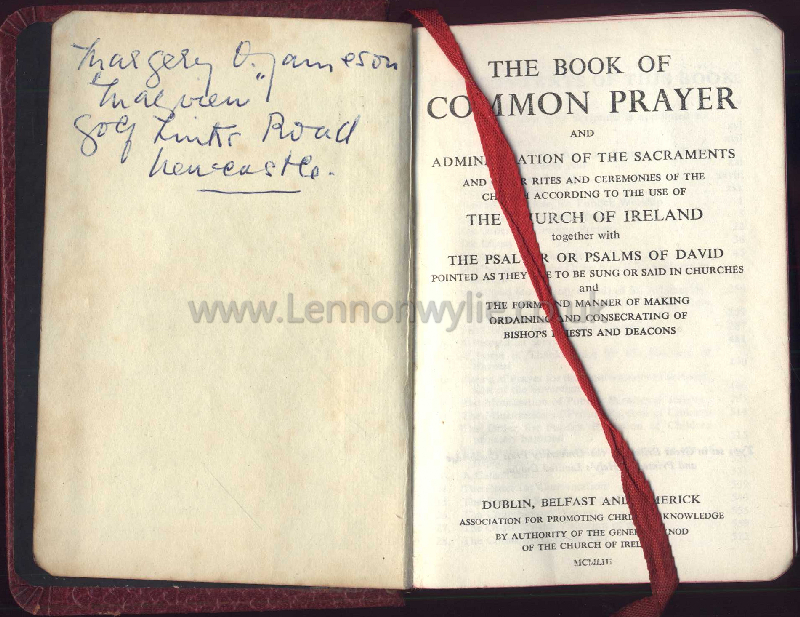 Margery O. Jameson
"Malvern"
Golf Links Road
Newcastle.
THE BOOK OF
COMMON PRAYER
AND
ADMIN ATION OF THE SACRAMENTS
AND R RITES AND CEREMONIES OF THE
CH H ACCORDING TO THE USE OF
THE HURCH OF IRELAND
together with
THE PSAL R OR PSALMS OF DAVID
POINTED AS THEY E TO BE SUNG OR SAID IN CHURCHES
and
THE FORM ND MANNER OF MAKING
ORDAINING AND CONSECRATING OF
BISHOPS IESTS AND DEACONS
www.Lennonwylie.co
DUBLIN, BELFAST AND MERICK
ASSOCIATION FOR PROMOTING CHRI KNOWLEDGE
BY AUTHORITY OF THE GENE NOD
OF THE CHURCH OF IREL